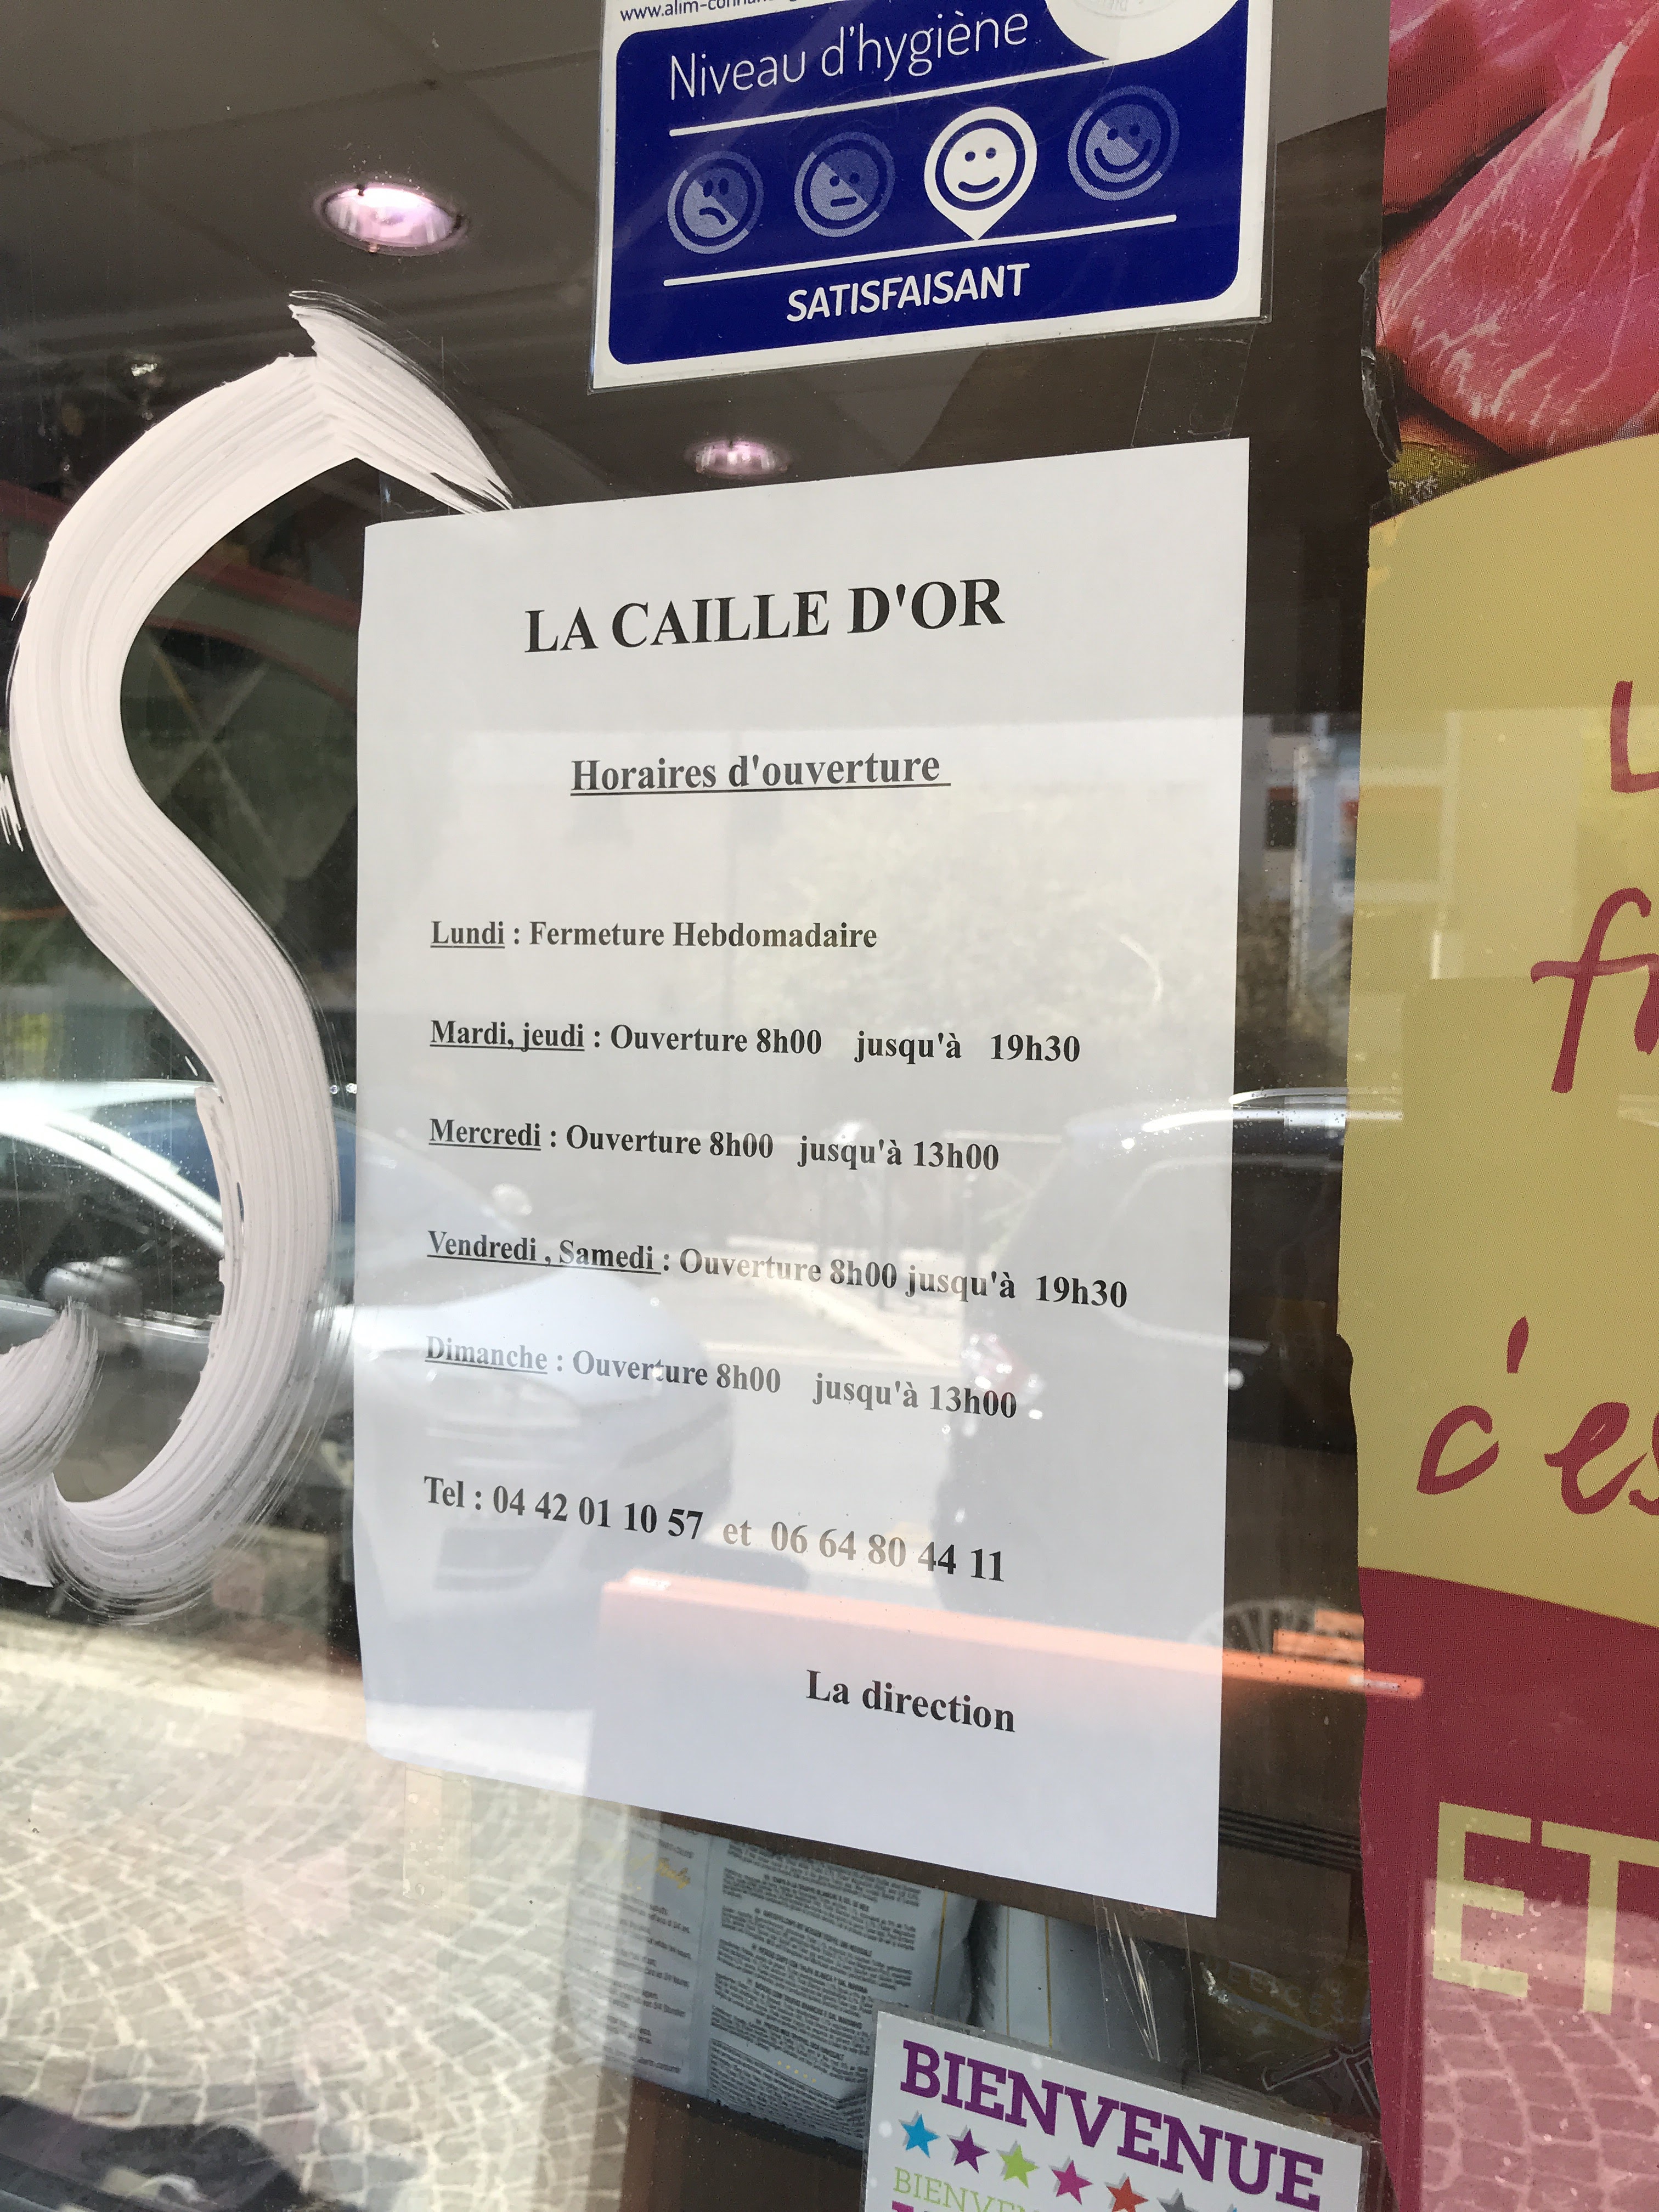 Niveau d'hygiène
SATISFAISANT
LA CAILLE D'OR
Horaires d'ouverture
Lundi : Fermeture Hebdomadaire
Mardi, jeudi : Ouverture 8h00 jusqu'à 19h30
Mercredi : Ouverture 8h00 jusqu'à 13h00
Vendredi , Samedi : Ouverture 8h00 jusqu'à 19h30
Dimanche : Ouverture 8h00 jusqu'à 13h00
Tel : 04 42 01 10 57 et 06 64 80 44 11
La direction
c'es
ET
BIENVENUE